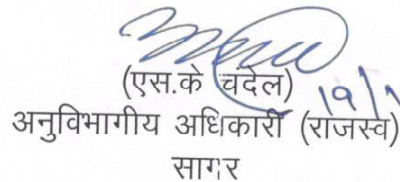 (एस.के चंदेल)
19/1
अनुविभागीय अधिकारी (राजस्व)
सागर